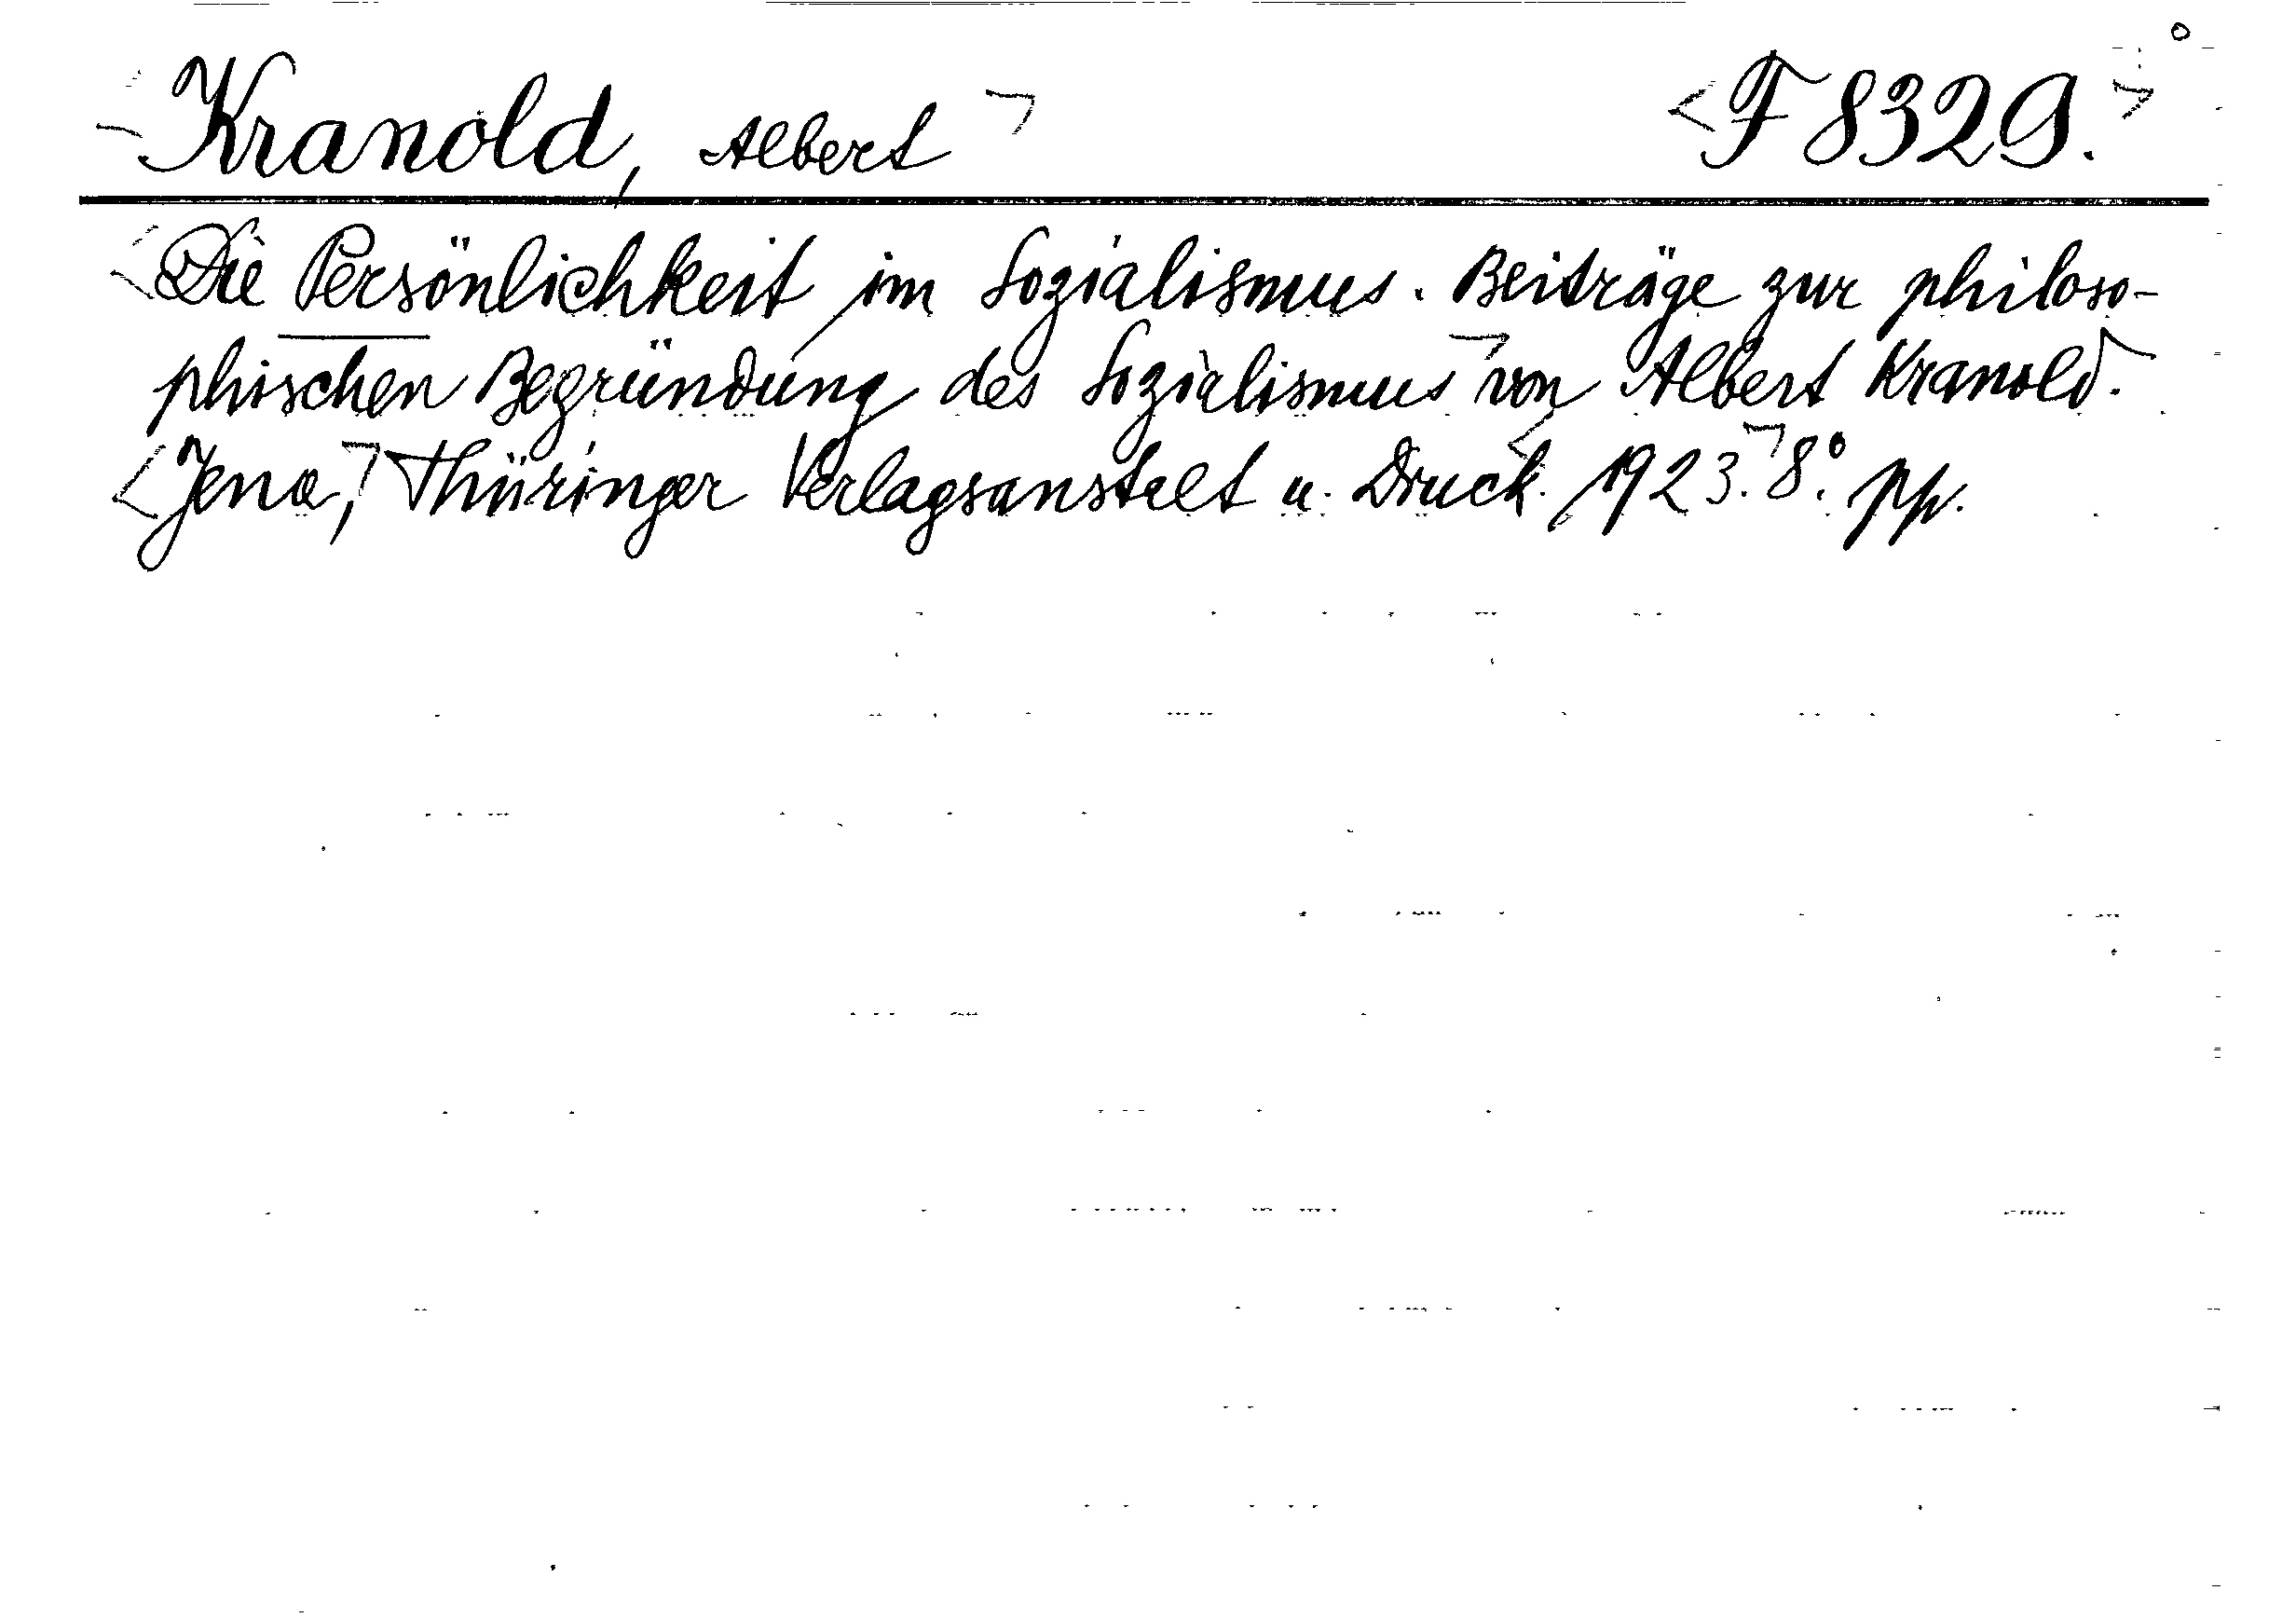 Kranold, Albert <F 8329.>
<Die Persönlichkeit im Sozialismus. Beiträge zur philoso-
phischen Begründung des Sozialismus> von Albert Kranold.
<Jena,> Thüringer Verlagsanstalt u. Druck. <1923.> 8.° pp.